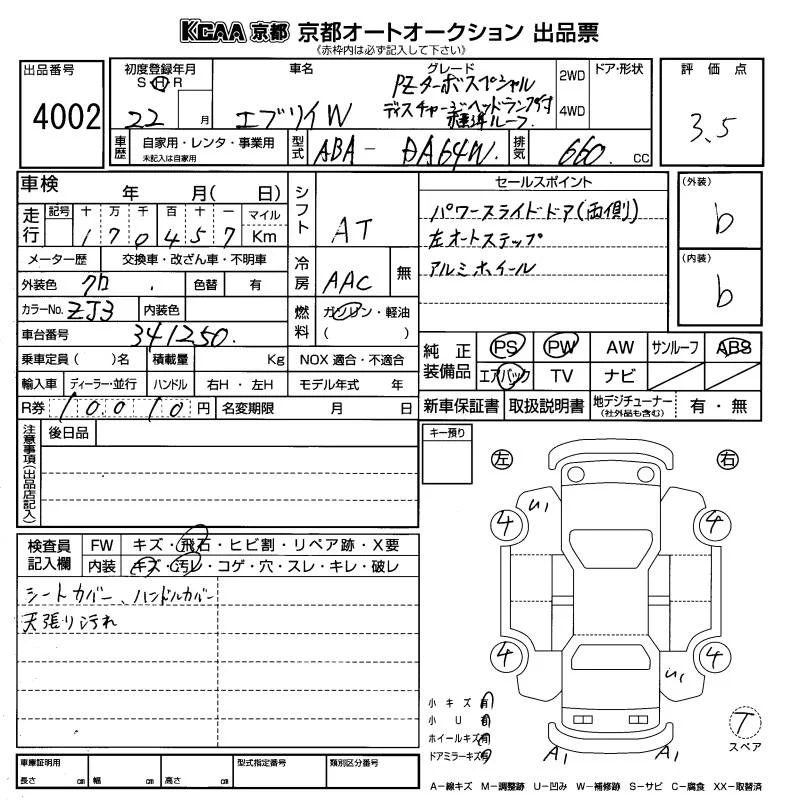 KCAA 京都 京都オートオークション 出品票
《赤枠内は必ず記入して下さい》
出品番号
4002
初度登録年月
S H R
22 月
車名
エブリイW
グレード
PZターボスペシャル
ディスチャージヘッドランプ付
標準ルーフ
2WD
4WD
ドア・形状
評価点
3.5
車歴
自家用・レンタ・事業用
未記入は自家用
型式
ABA-DA64W
排気
660 cc
車検 年 月( 日)
走行
記号 十 万 千 百 十 一 マイル
1 7 0 4 5 7 Km
メーター歴 交換車・改ざん車・不明車
外装色 クロ 色替 有
カラーNo. ZJ3 内装色
車台番号 341250
乗車定員( )名 積載量 Kg NOX 適合・不適合
輸入車 ディーラー・並行 ハンドル 右H・左H モデル年式 年
R券 10010 円 名変期限 月 日
シフト AT
冷房 AAC 無
燃料 ガソリン・軽油
( )
セールスポイント
パワースライドドア(両側)
左オートステップ
アルミホイール
(外装)
b
(内装)
b
純正装備品
PS PW AW サンルーフ ABS
エアバック TV ナビ
新車保証書 取扱説明書 地デジチューナー
(社外品も含む)
有・無
注意事項(出品店記入)
後日品
キー預り
左
右
検査員記入欄
FW キズ・飛石・ヒビ割・リペア跡・X要
内装 キズ・汚レ・コゲ・穴・スレ・キレ・破レ
シートカバー、ハンドルカバー
天張り汚れ
U1
4 4
4 4
U1
小キズ 有
小U 有
ホイールキズ 有
ドアミラーキズ 有
A1 A1
T
スペア
車庫証明用
長さ cm 幅 cm 高さ cm
型式指定番号
類別区分番号
A-線キズ M-調整跡 U-凹み W-補修跡 S-サビ C-腐食 XX-取替済